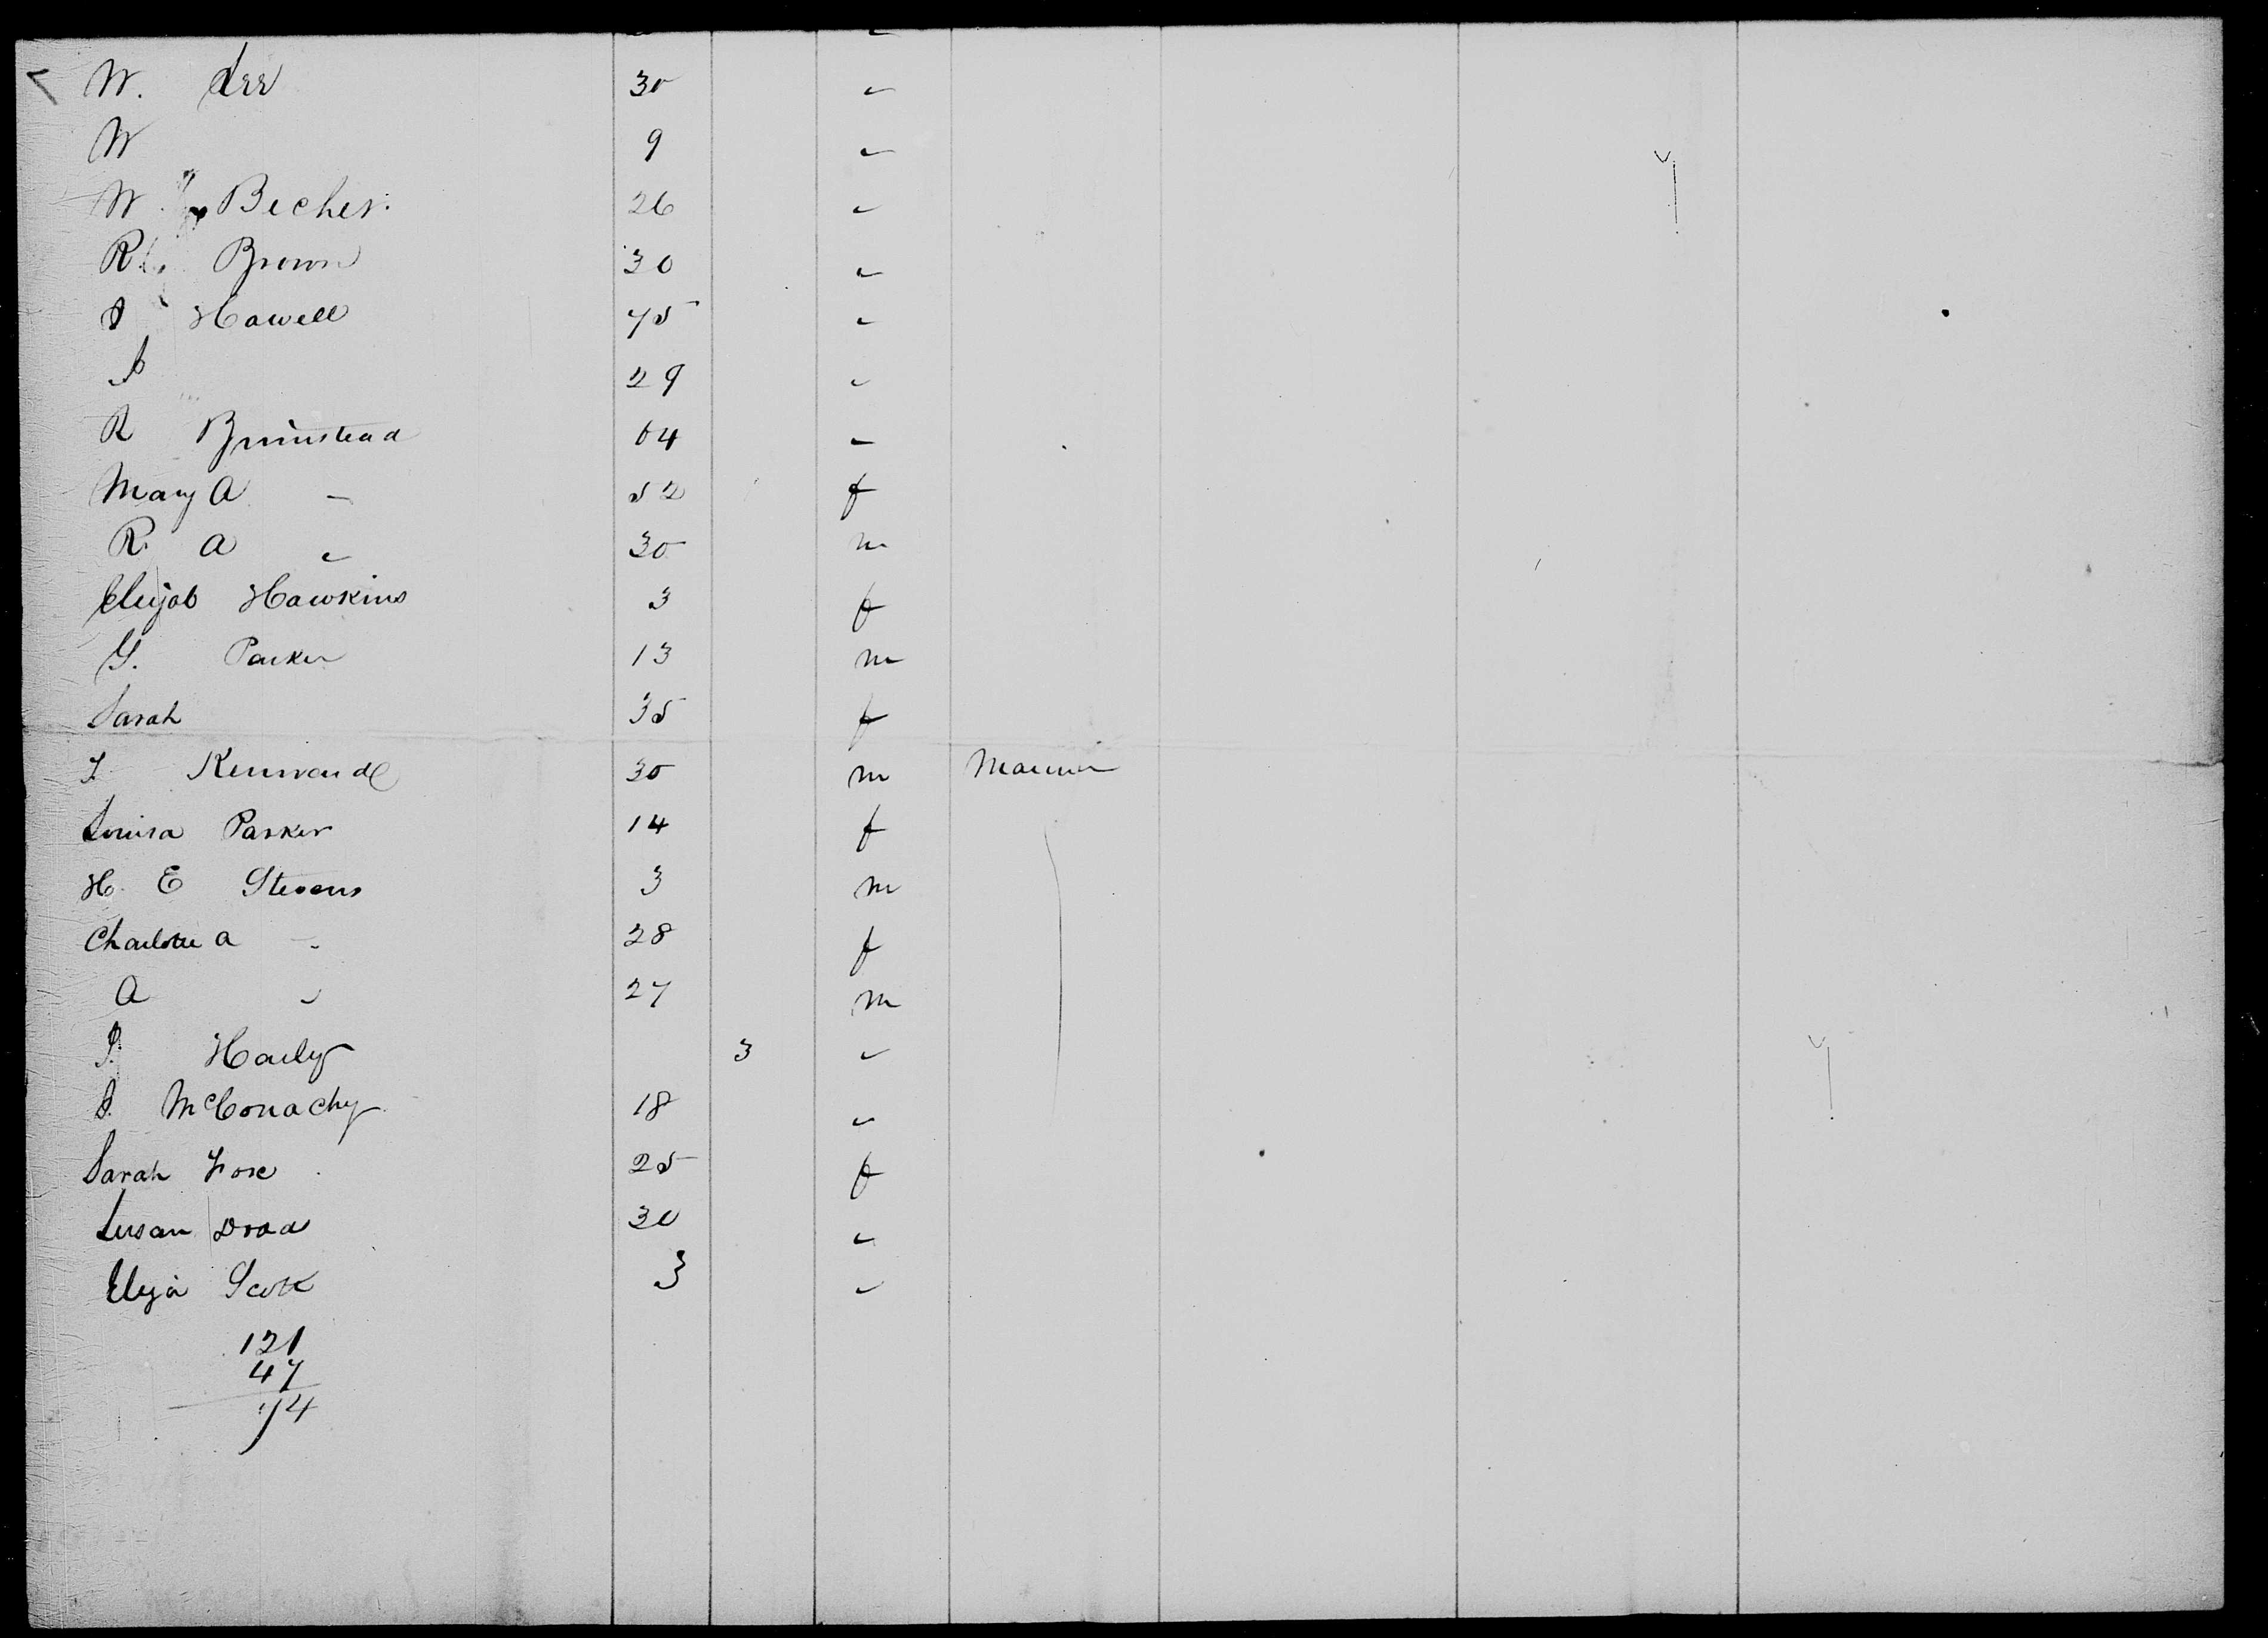 W. Lee 30 "
W 9 "
W. Becher. 26 "
R. Brown 30 "
J Hawell 75 "
J 29 "
R Brimstead 64 "
Mary A " 52 f
R. A " 30 m
Elijab Hawkins 3 f
G. Parker 13 m
Sarah 35 f
30 m Mariner
Louisa Parker 14 f
H. E Stevens 3 m
Charlotte a " 28 f
A " 27 m
Harley 3 "
J. McConachy 18 "
Sarah 25 f
Susan 30 "
Elija Scott 3 "
121
47
74